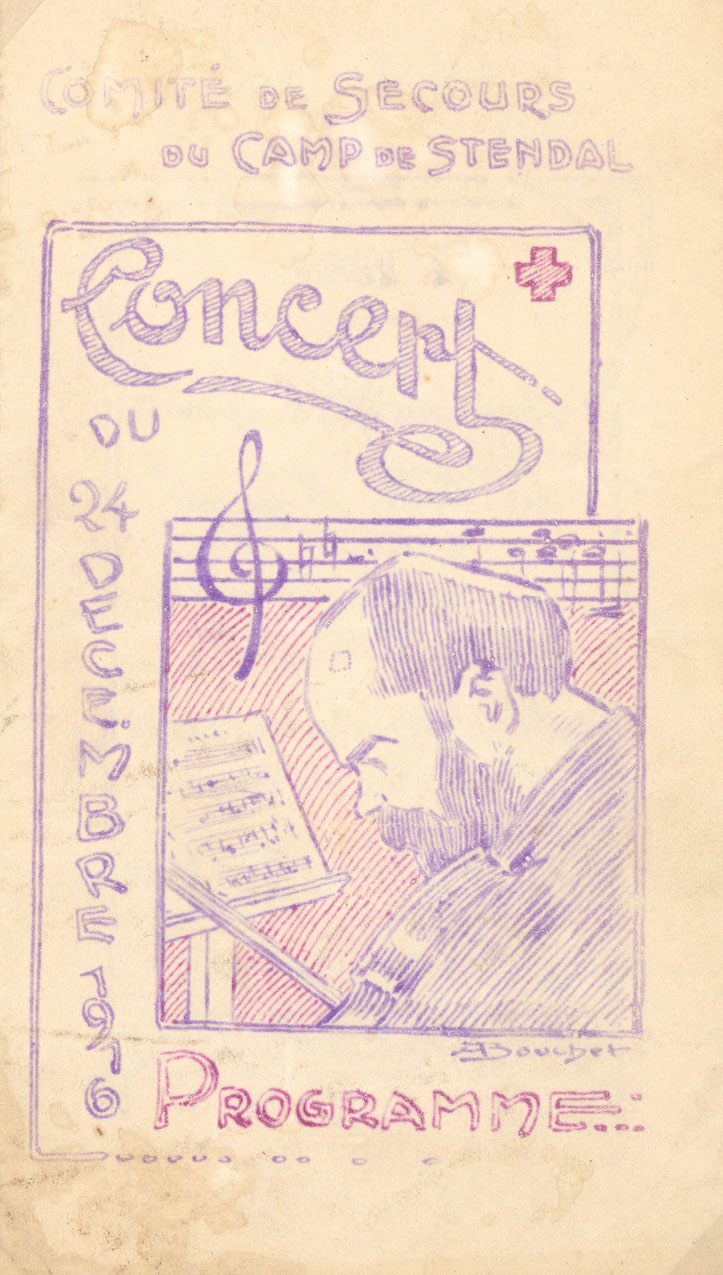 COMITÉ DE SECOURS
DU CAMP DE STENDAL
Concert
DU
24 DECEMBRE 1916
ABouchet
PROGRAMME...: